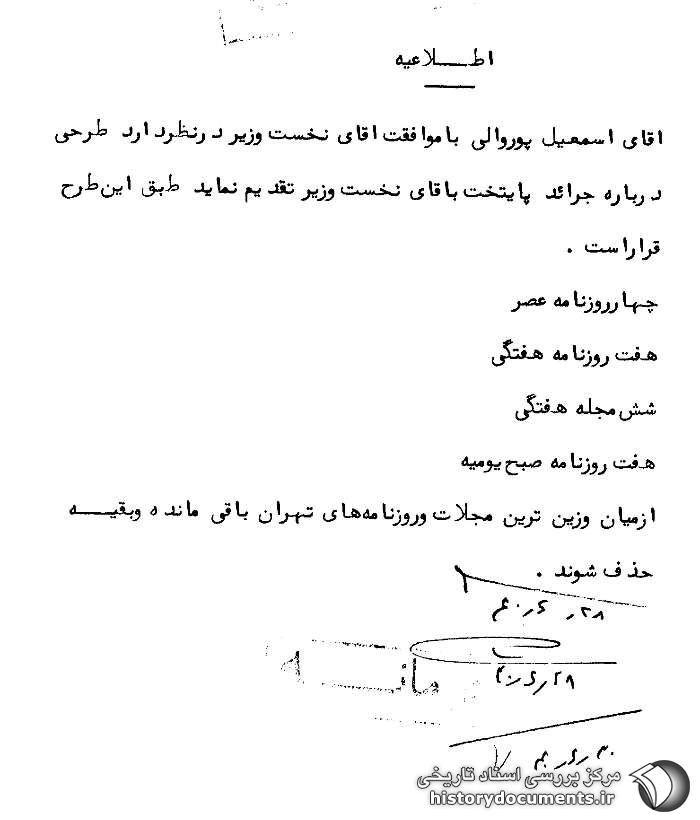 اطـــلاعیه
اقای اسمعیل پوروالی باموافقت اقای نخست وزیر درنظردارد طرحی
درباره جرائد پایتخت باقای نخست وزیر تقدیم نماید طبق این طرح
قراراست .
چهارروزنامه عصر
هفت روزنامه هفتگی
شش مجله هفتگی
هفت روزنامه صبح یومیه
ازمیان وزین ترین مجلات وروزنامه‌های تهران باقی مانده وبقیـــه
حذف شوند .
مرکز بررسی اسناد تاریخی
historydocuments.ir